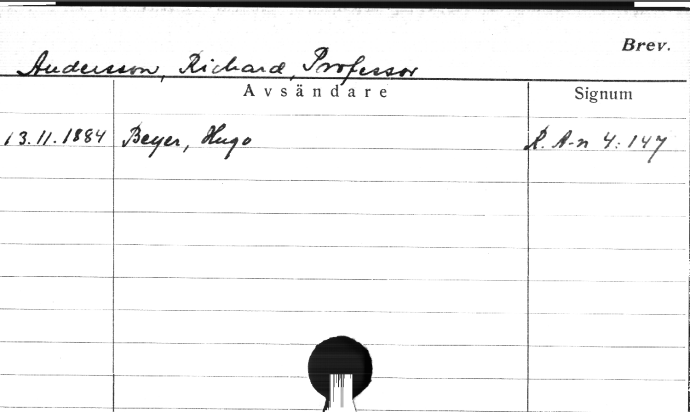 Brev.
Andersson, Richard, Professor
Avsändare Signum
13.11.1884 Beyer, Hugo R. A-n 4:147